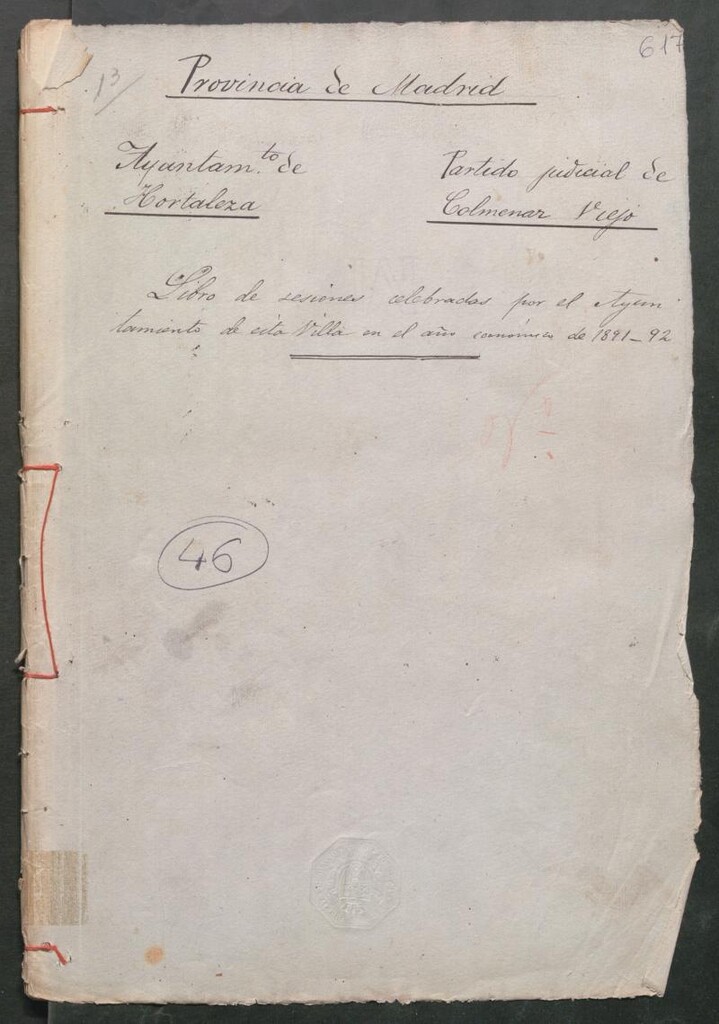 617
13
Provincia de Madrid
Ayuntam.to de
Hortaleza
Partido judicial de
Colmenar Viejo
Libro de sesiones celebradas por el Ayun-
tamiento de esta Villa en el año económico de 1891-92
46